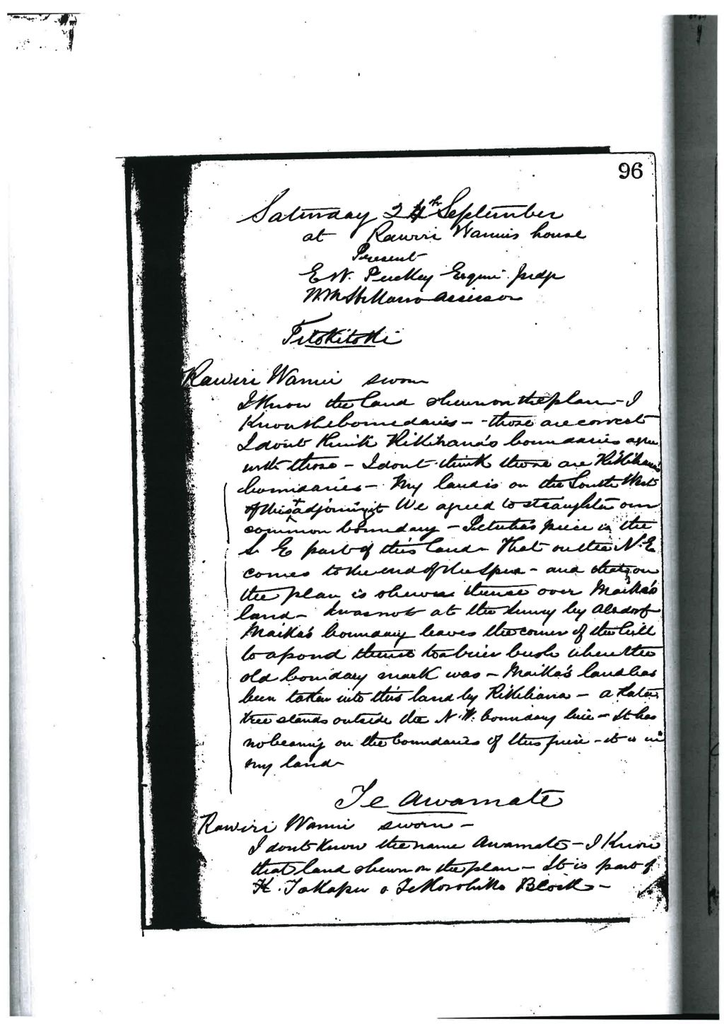 96
Saturday 24th September
at Rawiri Wanui's house
Present
E W. Puckey Esquire Judge
Assessor
Titokitoki
Rawiri Wanui sworn
I know the land shewn on the plan - I
know the boundaries - those are correct
I dont think boundaries agree
with those - I dont think those are
boundaries - My land is on the South West
of this adjoining it We agreed to straighten our
common boundary - piece is the
S. E part of this land - That on the N.E
comes to the end of the spur - and that on
the plan is shewn thence over Maika's
land - I was not at the survey by Alsdorf
Maika's boundary leaves the corner of the hill
to a pond thence to a brier bush where the
old boundary mark was - Maika's land has
been taken into this land by - a
tree stands outside the N.W. boundary line - It has
no bearing on the boundaries of this piece - it is in
my land -
Te Awamate
Rawiri Wanui sworn -
I dont know the name Awamate - I know
that land shewn on the plan - It is part of
Block -